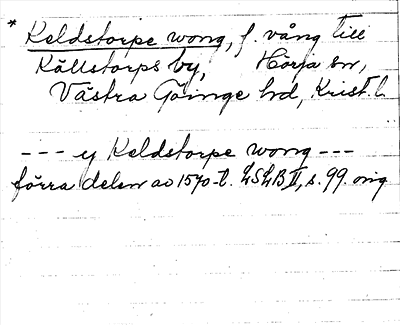 * Keldstorpe wong, f. vång till
Källstorps by, Hörja sn,
Västra Göinge hd, Krist. l.
--- y Keldstorpe wong ---
förra delen av 1570-t. LSLB II, s. 99. orig